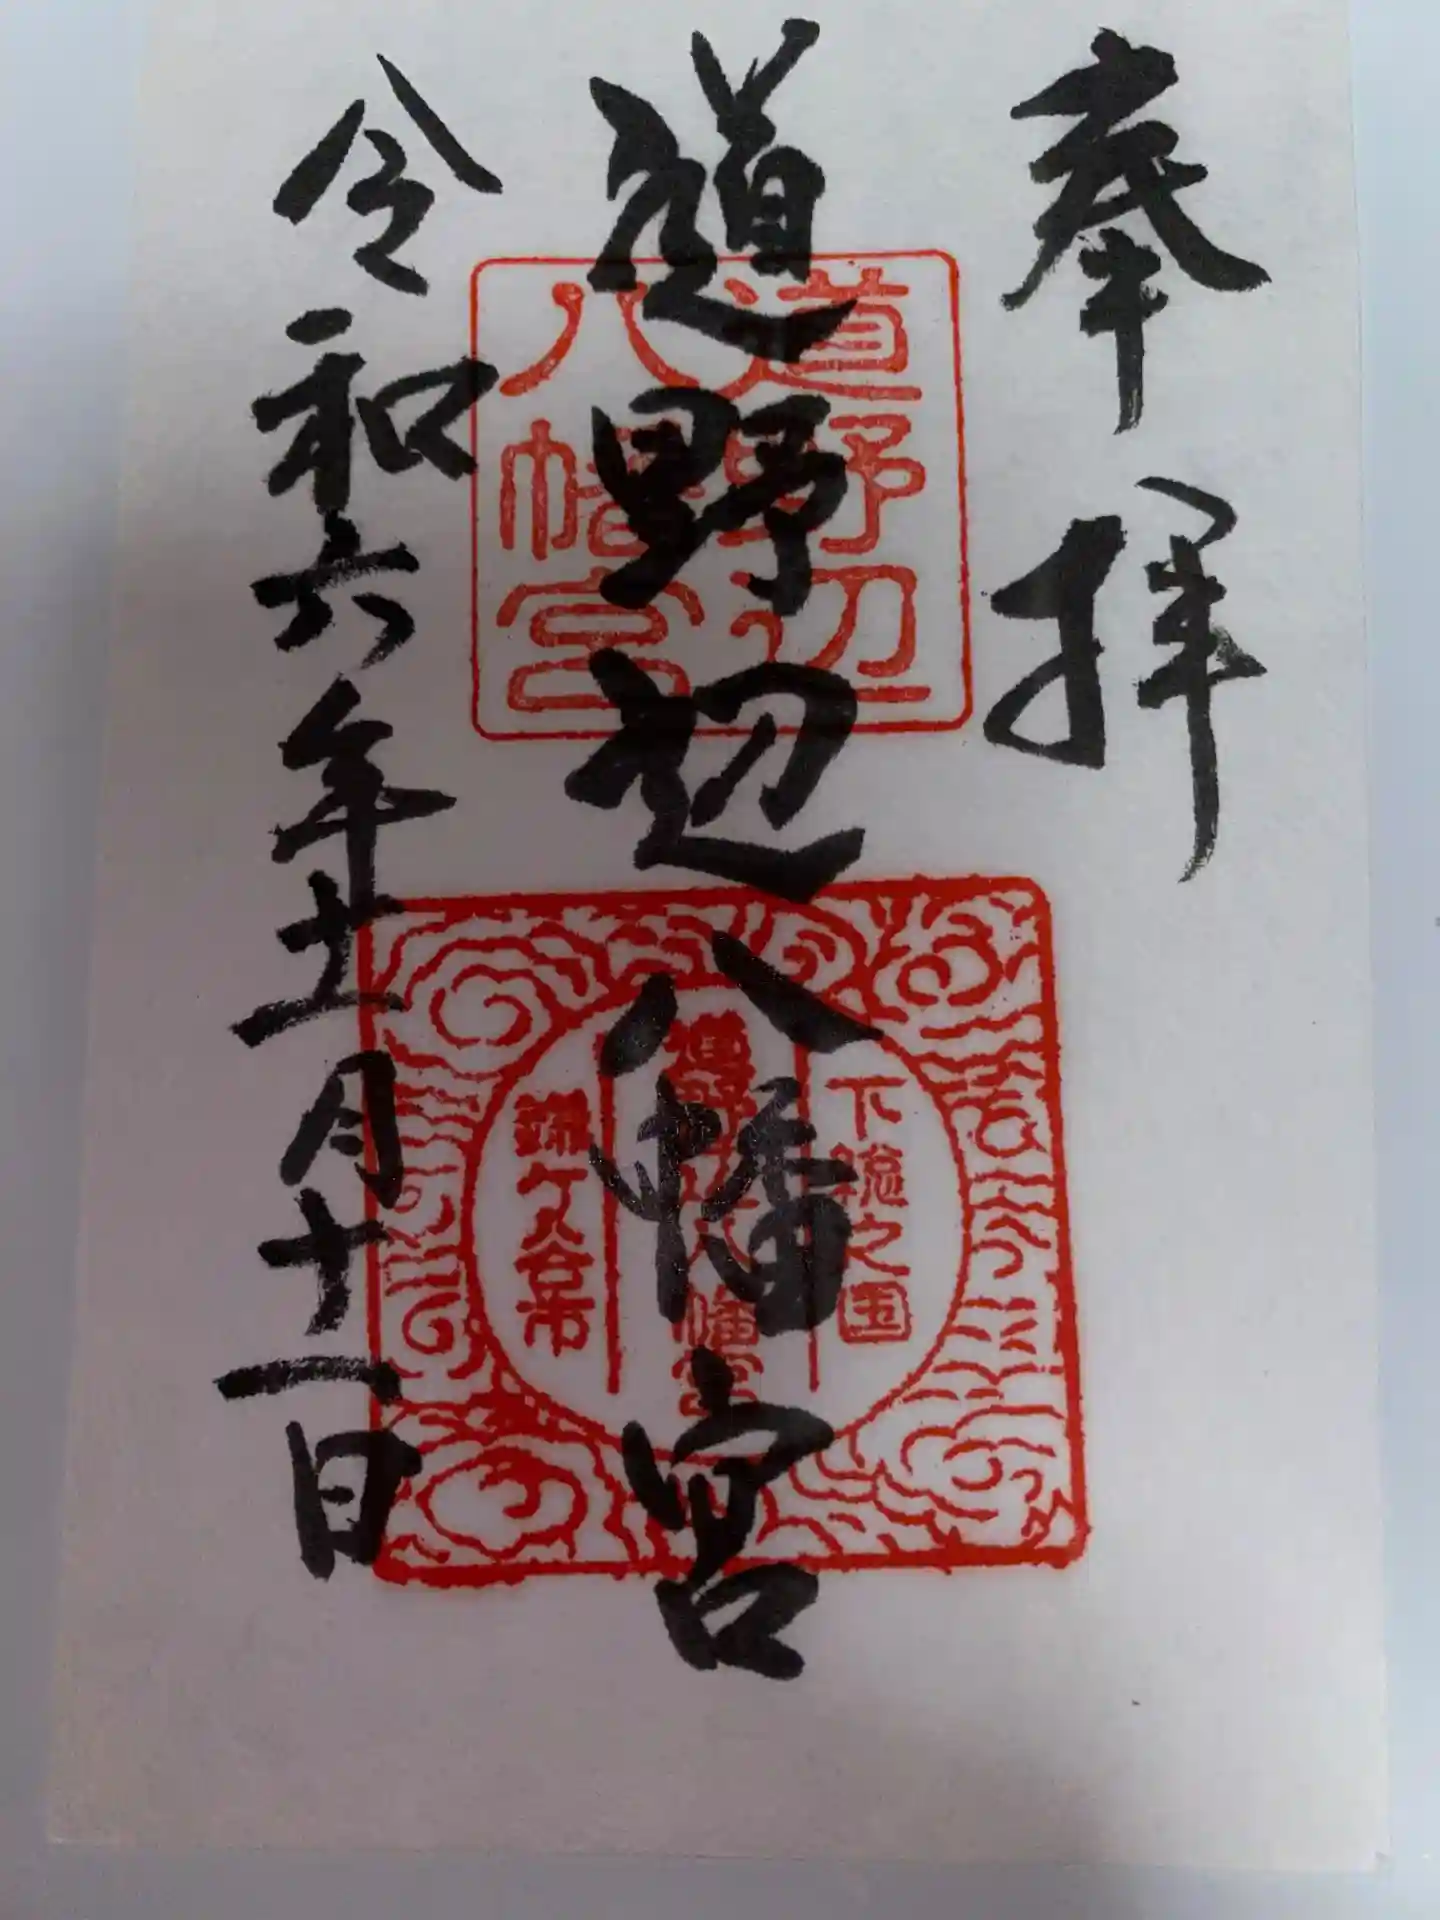 奉拝
道野辺八幡宮
令和六年十一月十一日
道野辺
八幡宮
下総之国
道野辺八幡宮
鎌ケ谷市